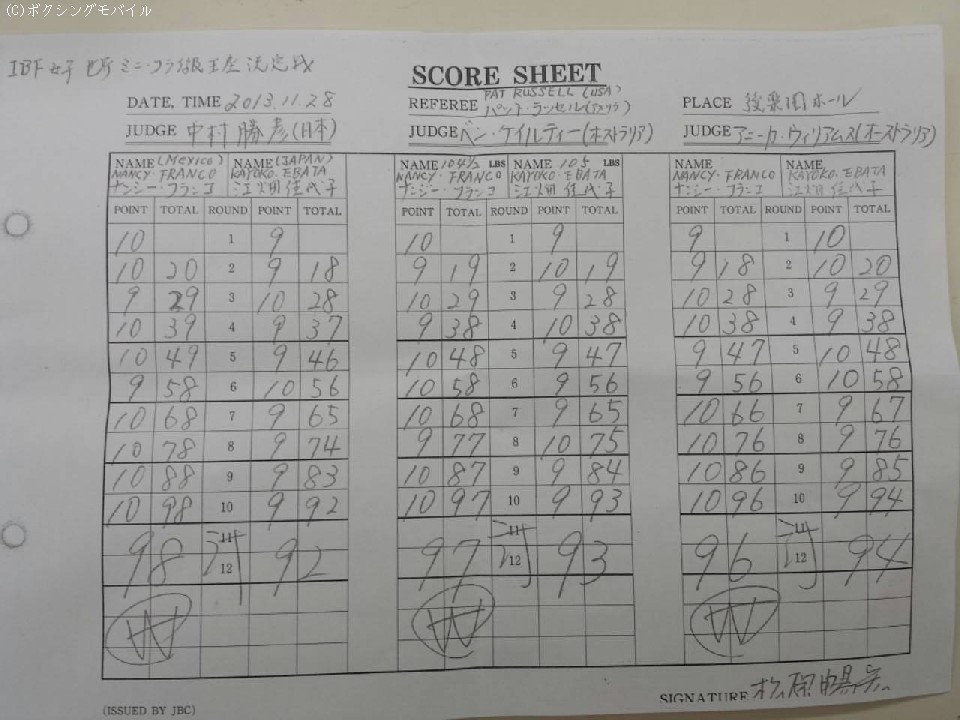 (C)ボクシングモバイル
IBF女子世界ミニ・フライ級王座決定戦
SCORE SHEET
DATE, TIME 2013.11.28
REFEREE PAT RUSSELL (USA)
パット・ラッセル(アメリカ)
PLACE 後楽園ホール
JUDGE 中村勝彦(日本)
JUDGE ベン・ケイルティー(オーストラリア)
JUDGE アニーカ・ウィリアムス(オーストラリア)
NAME (Mexico) NAME (JAPAN)
NANCY・FRANCO KAYOKO・EBATA
ナンシー・フランコ 江畑佳代子
POINT TOTAL ROUND POINT TOTAL
10 1 9
10 20 2 9 18
9 29 3 10 28
10 39 4 9 37
10 49 5 9 46
9 58 6 10 56
10 68 7 9 65
10 78 8 9 74
10 88 9 9 83
10 98 10 9 92
11
98 12 92
W
NAME 104½ LBS NAME 105 LBS
NANCY・FRANCO KAYOKO・EBATA
ナンシー・フランコ 江畑佳代子
POINT TOTAL ROUND POINT TOTAL
10 1 9
9 19 2 10 19
10 29 3 9 28
9 38 4 10 38
10 48 5 9 47
10 58 6 9 56
10 68 7 9 65
9 77 8 10 75
10 87 9 9 84
10 97 10 9 93
11
97 12 93
W
NAME NAME
NANCY・FRANCO KAYOKO EBATA
ナンシー・フランコ 江畑佳代子
POINT TOTAL ROUND POINT TOTAL
9 1 10
9 18 2 10 20
10 28 3 9 29
10 38 4 9 38
9 47 5 10 48
9 56 6 10 58
10 66 7 9 67
10 76 8 9 76
10 86 9 9 85
10 96 10 9 94
11
96 12 94
W
SIGNATURE
(ISSUED BY JBC)